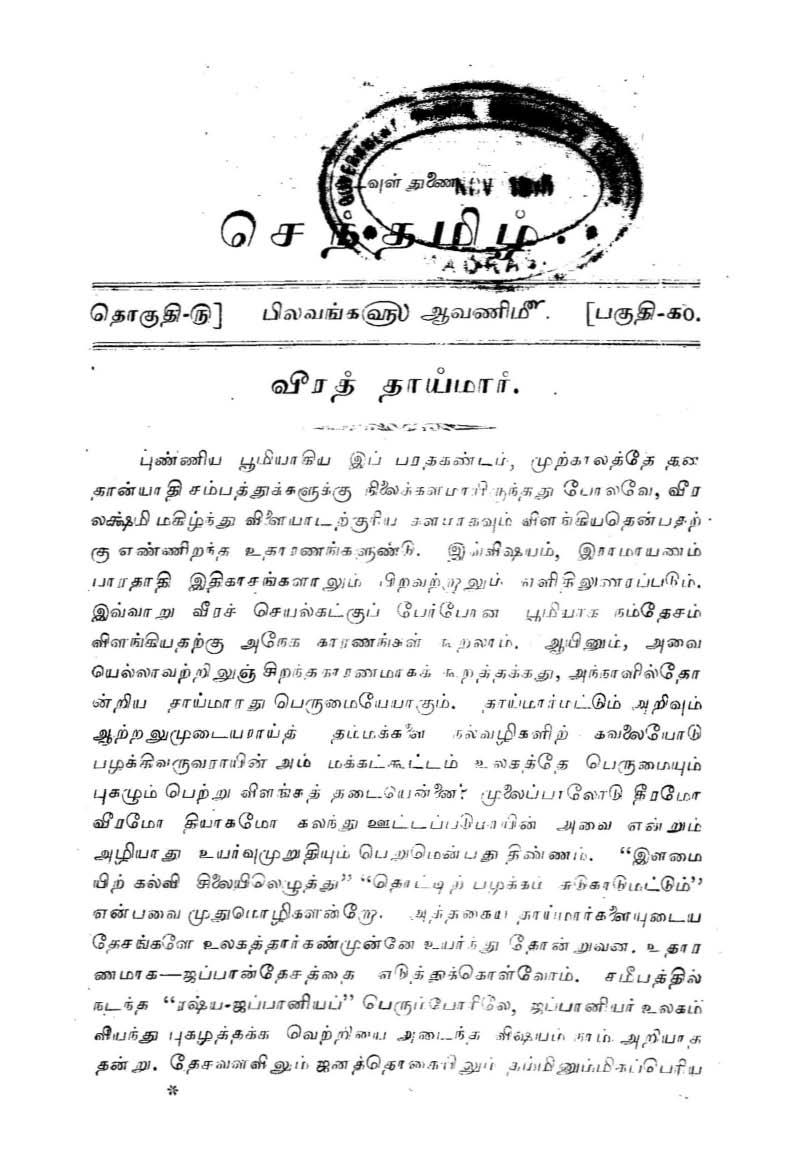 GOVERNMENT
கடவுள் துணை
NOV
செந்தமிழ்.
MADRAS
தொகுதி-ரு] பிலவங்கஹு ஆவணிமீ. [பகுதி-க௦.
வீரத் தாய்மார்.
புண்ணிய பூமியாகிய இப் பரதகண்டம், முற்காலத்தே தன
தான்யாதி சம்பத்துக்களுக்கு நிலைக்களமாயிருந்தது போலவே, வீர
லக்ஷ்மி மகிழ்ந்து விளையாடற்குரிய களமாகவும் விளங்கியதென்பதற்
கு எண்ணிறந்த உதாரணங்களுண்டு. இவ்விஷயம், இராமாயணம்
பாரதாதி இதிகாசங்களாலும் பிறவற்றாலும் எளிதிலுணரப்படும்.
இவ்வாறு வீரச் செயல்கட்குப் பேர்போன பூமியாக நம்தேசம்
விளங்கியதற்கு அநேக காரணங்கள் கூறலாம். ஆயினும், அவை
யெல்லாவற்றிலுஞ் சிறந்தகாரணமாகக் கூறத்தக்கது, அந்நாளில்தோ
ன்றிய தாய்மாரது பெருமையேயாகும். தாய்மார்மட்டும் அறிவும்
ஆற்றலுமுடையராய்த் தம்மக்களை நல்வழிகளிற் கவலையோடு
பழக்கிவருவராயின் அம் மக்கட்கூட்டம் உலகத்தே பெருமையும்
புகழும் பெற்று விளங்கத் தடையென்னை? முலைப்பாலோடு தீரமோ
வீரமோ தியாகமோ கலந்து ஊட்டப்படுமாயின் அவை என்றும்
அழியாது உயர்வுமுறுதியும் பெறுமென்பது திண்ணம். “இளமை
யிற் கல்வி சிலையிலெழுத்து” “தொட்டிற் பழக்கம் சுடுகாடுமட்டும்”
என்பவை முதுமொழிகளன்றோ. அத்தகைய தாய்மார்களையுடைய
தேசங்களே உலகத்தார்கண்முன்னே உயர்ந்து தோன்றுவன. உதார
ணமாக—ஜப்பான்தேசத்தை எடுத்துக்கொள்வோம். சமீபத்தில்
நடந்த “ரஷ்ய-ஜப்பானியப்” பெரும்போரிலே, ஜப்பானியர் உலகம்
வியந்து புகழத்தக்க வெற்றியை அடைந்த விஷயம் நாம் அறியாத
தன்று. தேசவளவிலும் ஜனத்தொகையிலும் தம்மினும்மிகப்பெரிய
*